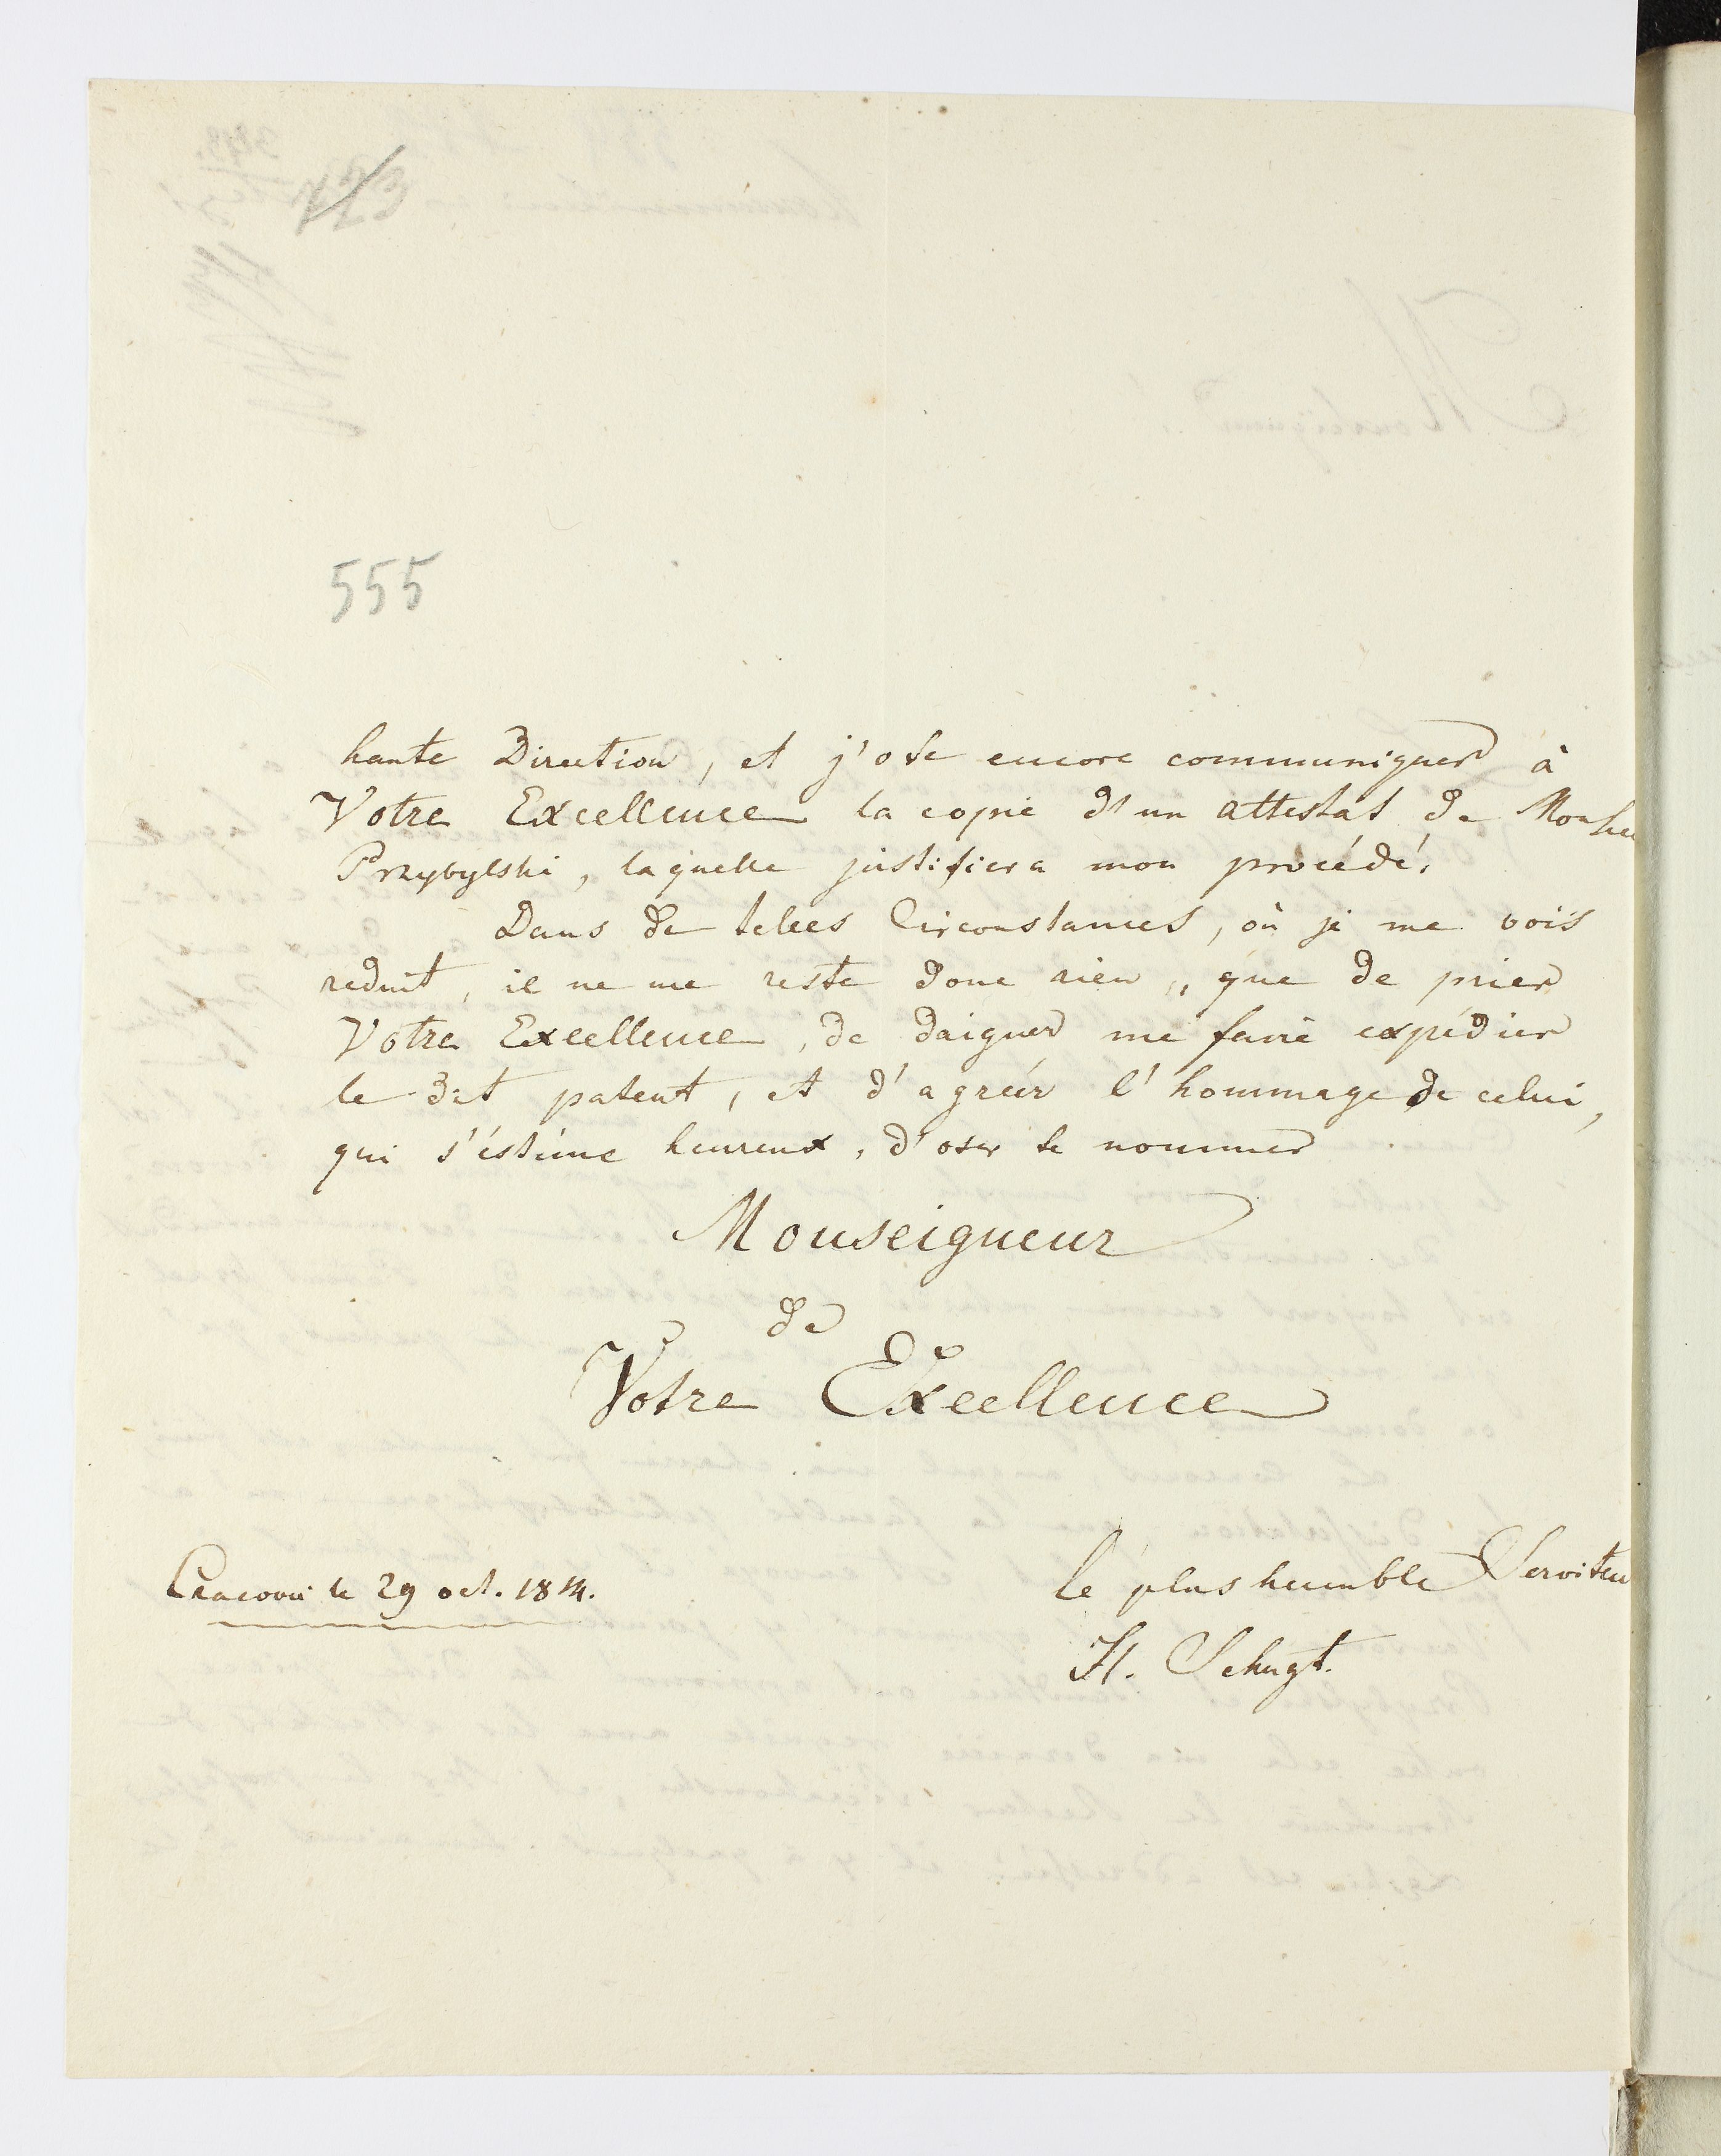 555
haute Direction, et j'ose encore communiquer à
Votre Excellence la copie d'un attestat de Monsieu
Przybylski, laquelle justifiera mon procédé.
Dans de telles Circonstances, où je me vois
reduit, il ne me reste donc rien, que de prier
Votre Excellence, de daigner me faire expédier
le dit patent, et d'agréér l'hommage de celui,
qui s'éstime heureux, d'oser se nommer
Monseigneur
de
Votre Excellence
le plus humble Serviteu
Cracovie le 29 oct. 1814.
H. Schugt.